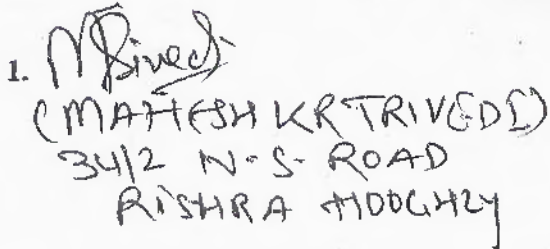 1. MTrivedi
(MAHESH KR TRIVEDI)
34/2 N-S- ROAD
RISHRA HOOGHLY